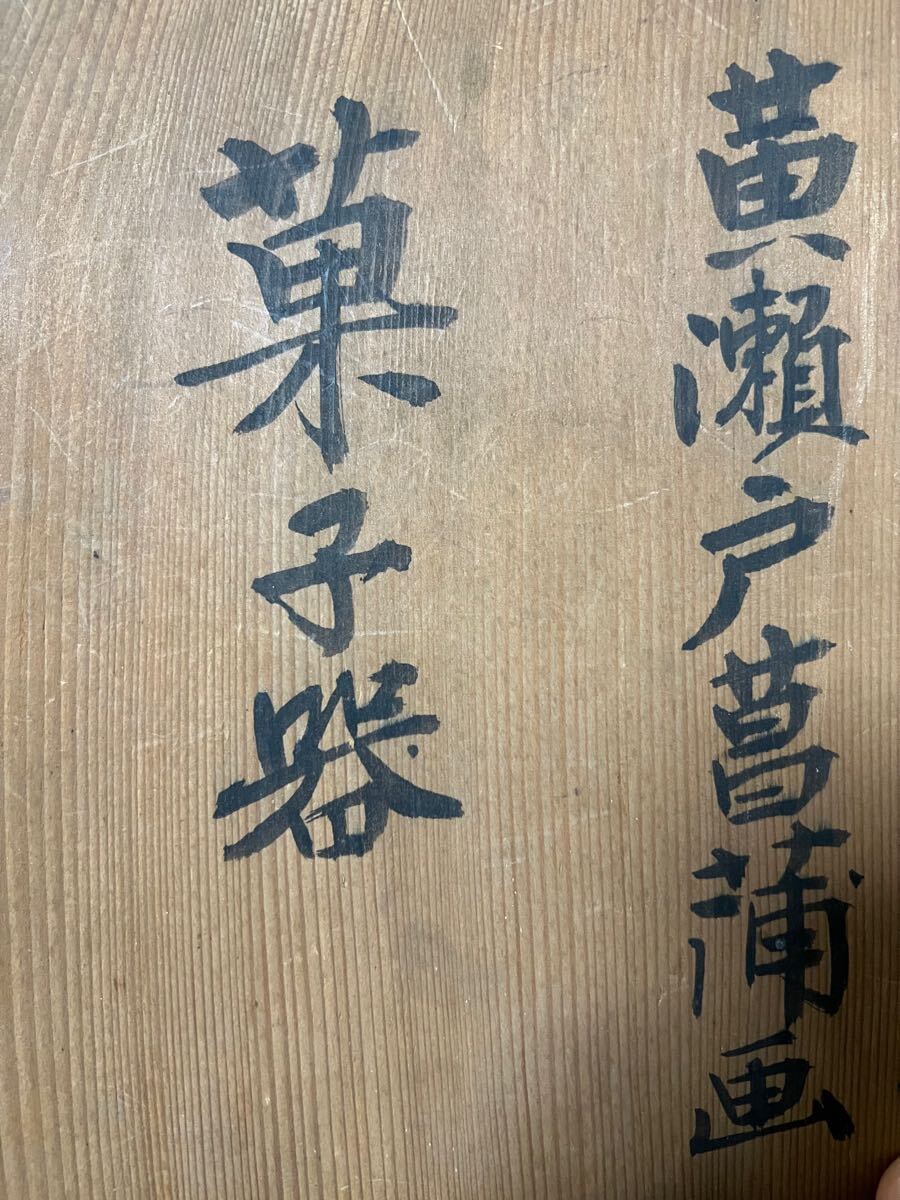 黄瀬戸菖蒲画
菓子器